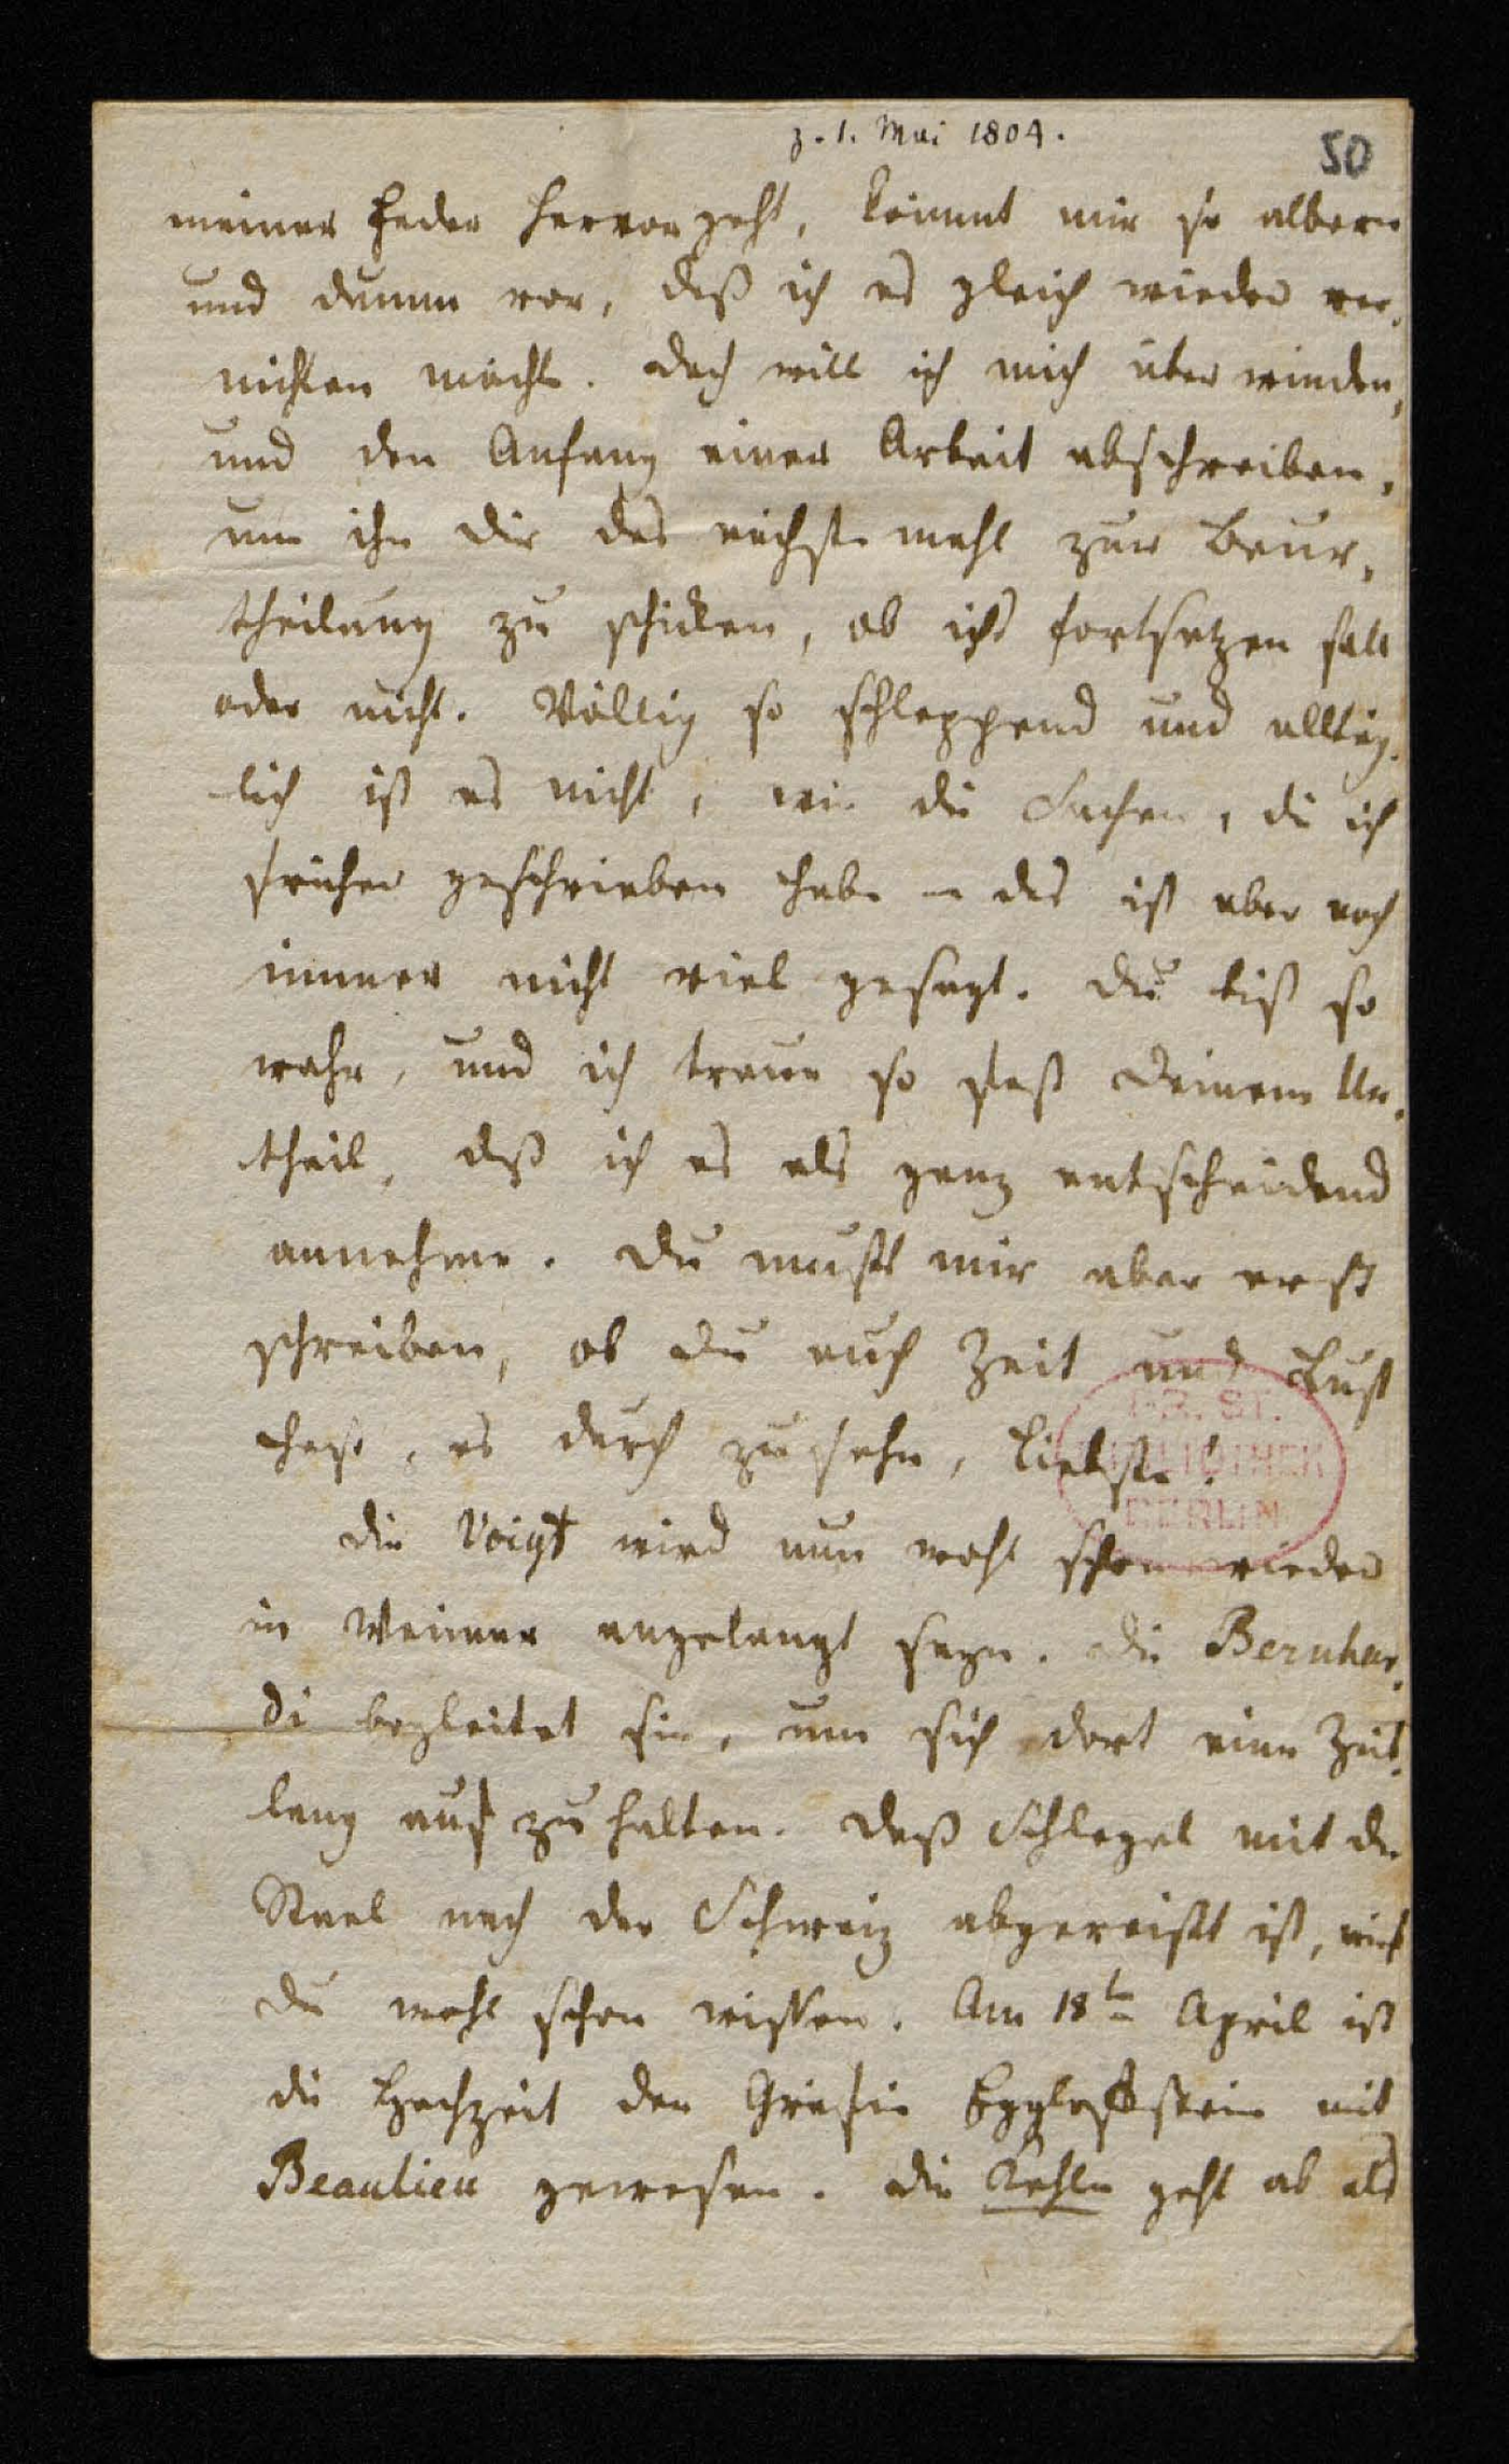 z. 1. Mai 1804.
50
meiner Feder hervorgeht, kömmt mir so albern
und dumm vor, daß ich es gleich wieder ver-
nichten möchte. Doch will ich mich überwinden,
und den Anfang einer Arbeit abschreiben,
um ihn Dir das nächste mahl zur Beur-
theilung zu schicken, ob ichs fortsetzen soll
oder nicht. Völlig so schleppend und alltäg-
lich ist es nicht, wie die Sachen, die ich
früher geschrieben habe – das ist aber noch
immer nicht viel gesagt. Du bist so
wahr, und ich traue so fest Deinem Ur-
theil, daß ich es als ganz entscheidend
annehme. Du mußt mir aber erst
schreiben, ob Du auch Zeit und Lust
hast, es durch zu sehn, Liebste!
PR. ST.
BIBLIOTHEK
BERLIN
Die Voigt wird nun wohl schon wieder
in Weimar angelangt seyn. Die Bernhar-
di begleitet sie, um sich dort eine Zeit-
lang auf zu halten. Daß Schlegel mit der
Stael nach der Schweiz abgereißt ist, wirst
Du wohl schon wissen. Am 18ten April ist
die Hochzeit der Gräfin Egglofstein mit
Beaulieu gewesen. Die geht ab als